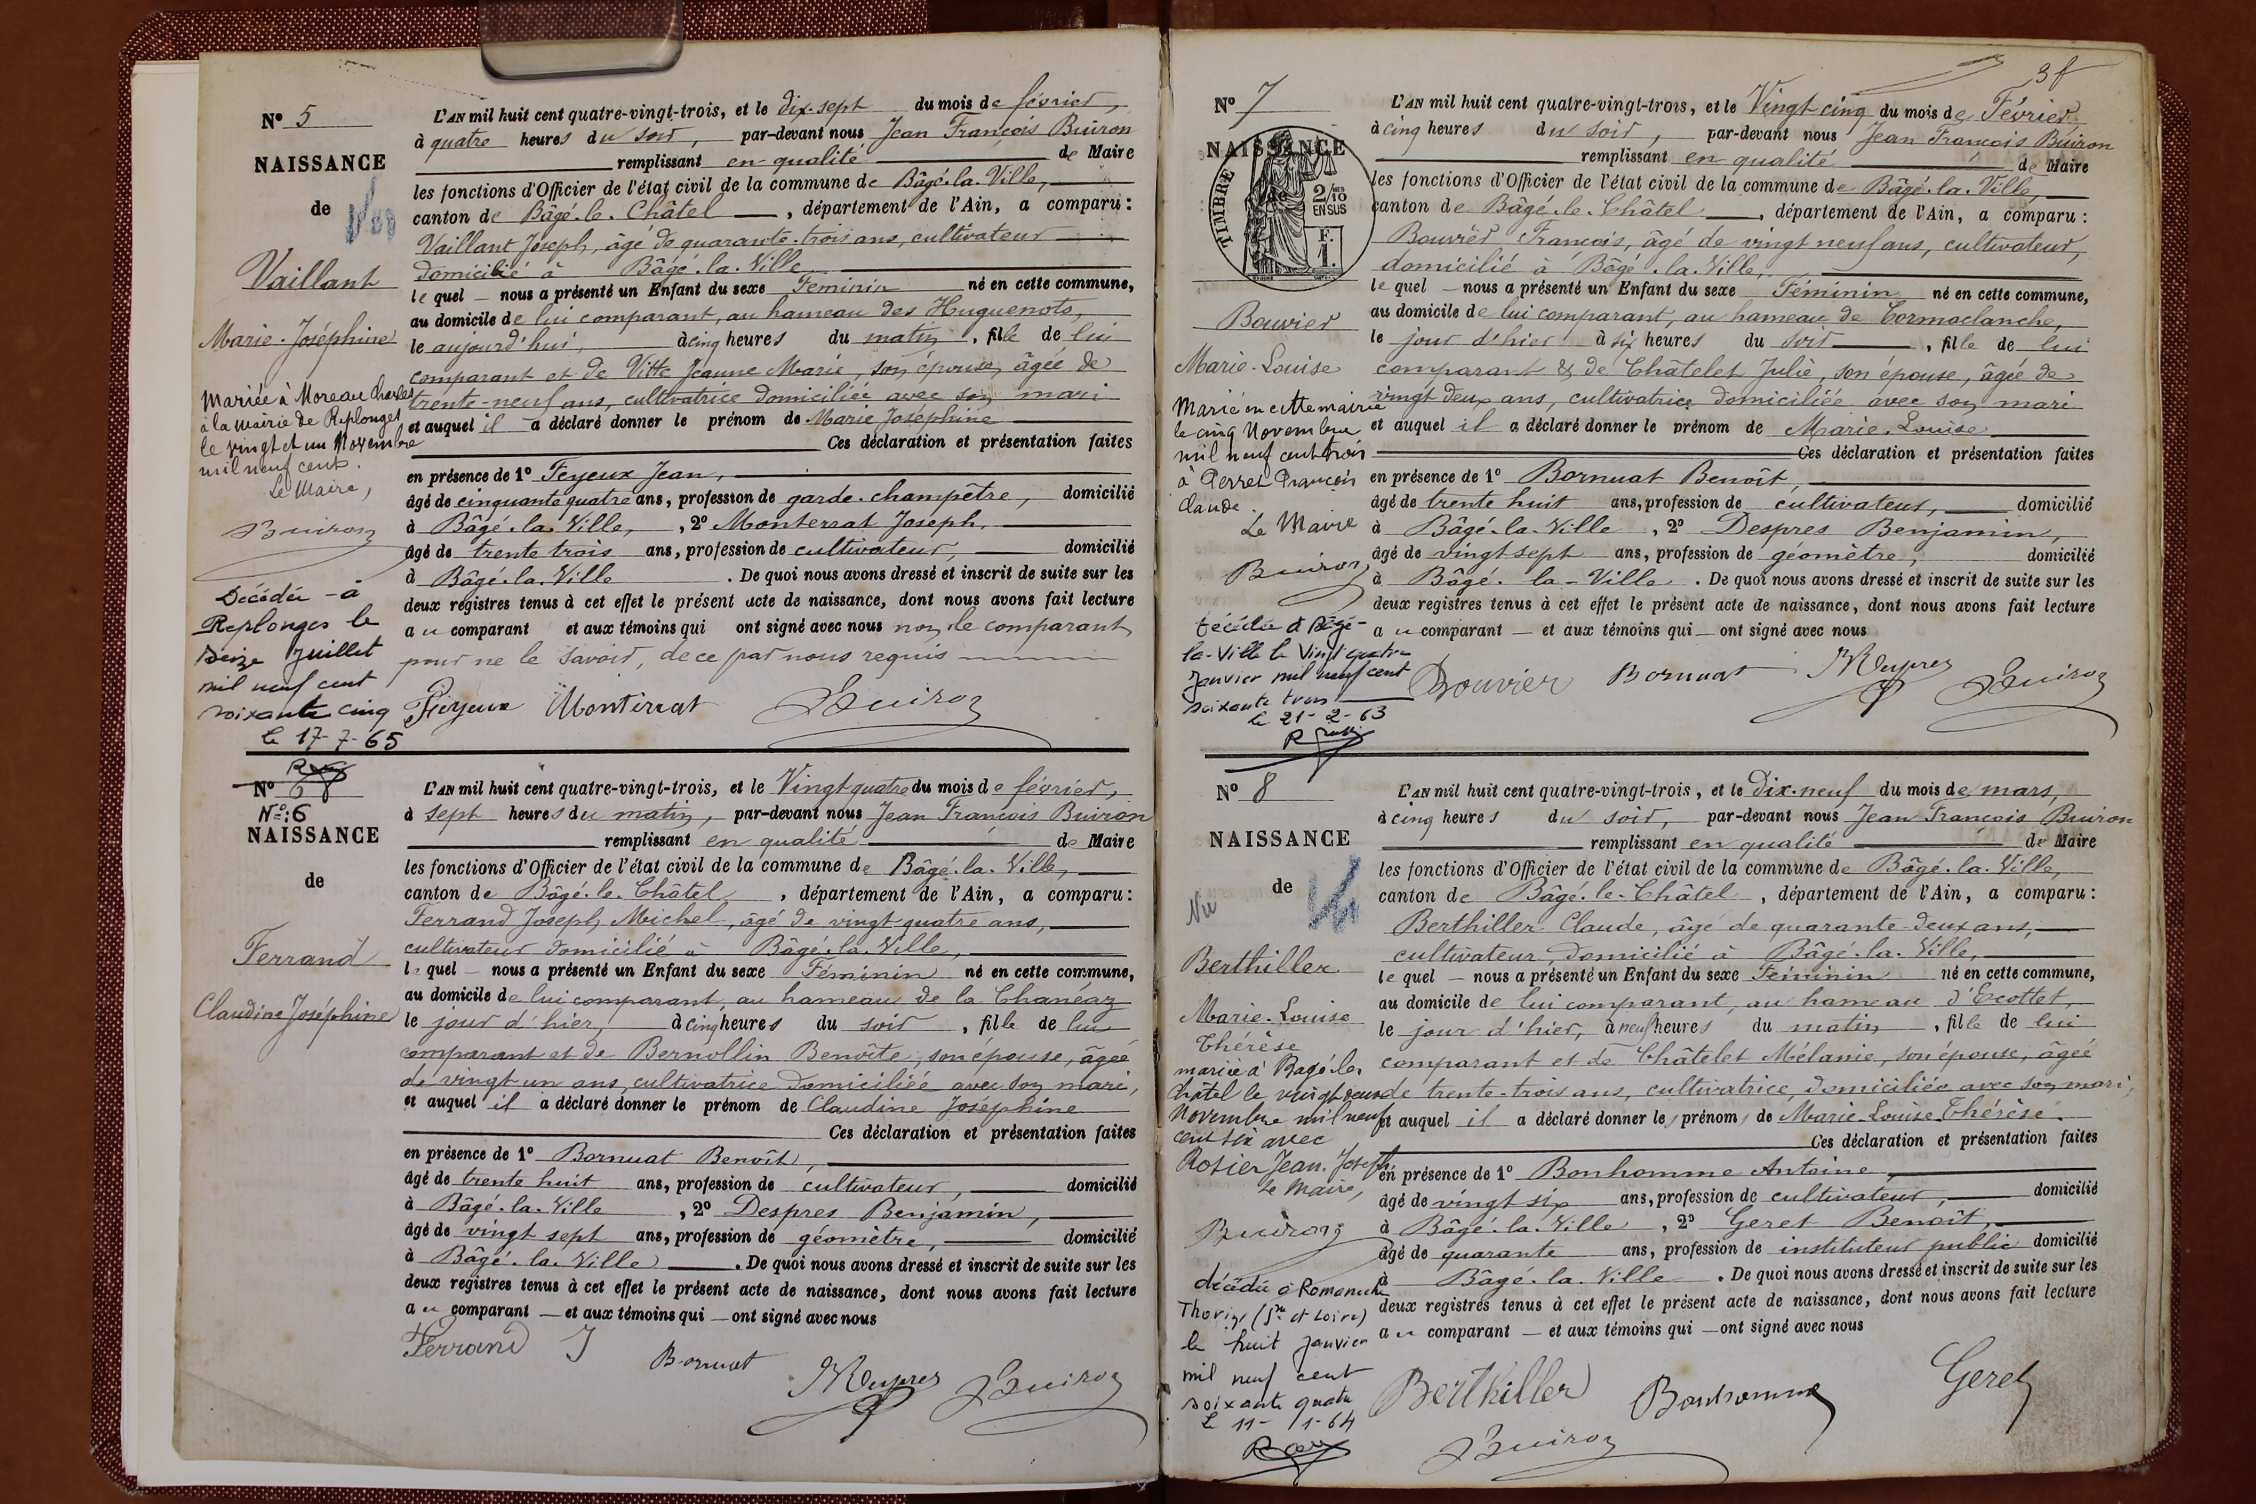 N° 5
NAISSANCE
de
Vaillant
Marie-Joséphine
Mariée à Moreau Charles
à la mairie de Replonges
le vingt et un Novembre
mil neuf cent.
Le Maire,
Buiron
Décédée à
Replonges le
seize Juillet
mil neuf cent
soixante cinq
le 17-7-65
L'AN mil huit cent quatre-vingt-trois, et le dix-sept du mois de février,
à quatre heures du soir, par-devant nous Jean François Buiron
remplissant en qualité de Maire
les fonctions d'Officier de l'état civil de la commune de Bâgé-la-Ville,
canton de Bâgé-le-Châtel, département de l'Ain, a comparu :
Vaillant Joseph, âgé de quarante-trois ans, cultivateur
domicilié à Bâgé-la-Ville
lequel nous a présenté un Enfant du sexe Féminin né en cette commune,
au domicile de lui comparant, au hameau des Huguenots,
le aujourd'hui, à cinq heures du matin, fille de lui
comparant et de Vitte Jeanne Marie, son épouse, âgée de
trente-neuf ans, cultivatrice domiciliée avec son mari
et auquel il a déclaré donner le prénom de Marie Joséphine
Ces déclaration et présentation faites
en présence de 1° Feyeux Jean,
âgé de cinquante quatre ans, profession de garde-champêtre, domicilié
à Bâgé-la-Ville, 2° Monterrat Joseph,
âgé de trente trois ans, profession de cultivateur, domicilié
à Bâgé-la-Ville. De quoi nous avons dressé et inscrit de suite sur les
deux registres tenus à cet effet le présent acte de naissance, dont nous avons fait lecture
au comparant et aux témoins qui ont signé avec nous non le comparant
pour ne le savoir, de ce par nous requis
Feyeux Monterrat Buiron
N° 6
N°: 6
NAISSANCE
de
Ferrand
Claudine Joséphine
L'AN mil huit cent quatre-vingt-trois, et le Vingt quatre du mois de février,
à sept heures du matin, par-devant nous Jean François Buiron
remplissant en qualité de Maire
les fonctions d'Officier de l'état civil de la commune de Bâgé-la-Ville,
canton de Bâgé-le-Châtel, département de l'Ain, a comparu :
Ferrand Joseph Michel, âgé de vingt quatre ans,
cultivateur domicilié à Bâgé-la-Ville,
lequel nous a présenté un Enfant du sexe Féminin né en cette commune,
au domicile de lui comparant, au hameau de la Chanéaz
le jour d'hier, à cinq heures du soir, fille de lui
comparant et de Bernollin Benoîte, son épouse, âgée
de vingt un ans, cultivatrice domiciliée avec son mari,
et auquel il a déclaré donner le prénom de Claudine Joséphine
Ces déclaration et présentation faites
en présence de 1° Bornuat Benoît,
âgé de trente huit ans, profession de cultivateur, domicilié
à Bâgé-la-Ville, 2° Despres Benjamin,
âgé de vingt sept ans, profession de géomètre, domicilié
à Bâgé-la-Ville. De quoi nous avons dressé et inscrit de suite sur les
deux registres tenus à cet effet le présent acte de naissance, dont nous avons fait lecture
au comparant et aux témoins qui ont signé avec nous
Ferrand J Bornuat Despres Buiron
3 f
N° 7
NAISSANCE
de
TIMBRE
2/10
EN SUS
F.
1.
Bouvier
Marie-Louise
Mariée en cette mairie
le cinq Novembre
mil neuf cent trois
à Perret François
Claude.
Le Maire
Buiron
Décédée à Bâgé-
la-Ville le Vingt quatre
Janvier mil neuf cent
soixante trois
le 21-2-63
L'AN mil huit cent quatre-vingt-trois, et le Vingt cinq du mois de Février
à cinq heures du soir, par-devant nous Jean François Buiron
remplissant en qualité de Maire
les fonctions d'Officier de l'état civil de la commune de Bâgé-la-Ville,
canton de Bâgé-le-Châtel, département de l'Ain, a comparu :
Bouvier François, âgé de vingt neuf ans, cultivateur,
domicilié à Bâgé-la-Ville,
lequel nous a présenté un Enfant du sexe Féminin né en cette commune,
au domicile de lui comparant, au hameau de Cormoclanche,
le jour d'hier à six heures du soir, fille de lui
comparant & de Châtelet Julie, son épouse, âgée de
vingt deux ans, cultivatrice domiciliée avec son mari
et auquel il a déclaré donner le prénom de Marie-Louise
Ces déclaration et présentation faites
en présence de 1° Bornuat Benoît,
âgé de trente huit ans, profession de cultivateur, domicilié
à Bâgé-la-Ville, 2° Despres Benjamin,
âgé de vingt sept ans, profession de géomètre, domicilié
à Bâgé-la-Ville. De quoi nous avons dressé et inscrit de suite sur les
deux registres tenus à cet effet le présent acte de naissance, dont nous avons fait lecture
au comparant et aux témoins qui ont signé avec nous
Bouvier Bornuat Despres Buiron
N° 8
NAISSANCE
de
Nu
Berthiller
Marie-Louise
Thérèse
mariée à Bagé-le-
châtel le vingt deux
Novembre mil neuf
cent six avec
Rosier Jean-Joseph
Le Maire,
Buiron
décédée à Romanèche
Thorins (Sne et Loire)
le huit janvier
mil neuf cent
soixante quatre
Le 11-1-64
L'AN mil huit cent quatre-vingt-trois, et le Dix-neuf du mois de mars,
à cinq heures du soir, par-devant nous Jean François Buiron
remplissant en qualité de Maire
les fonctions d'Officier de l'état civil de la commune de Bâgé-la-Ville,
canton de Bâgé-le-Châtel, département de l'Ain, a comparu :
Berthiller Claude, âgé de quarante-deux ans,
cultivateur, domicilié à Bâgé-la-Ville,
lequel nous a présenté un Enfant du sexe Féminin né en cette commune,
au domicile de lui comparant, au hameau d'Escottet,
le jour d'hier, à neuf heures du matin, fille de lui
comparant et de Châtelet Mélanie, son épouse, âgée
de trente-trois ans, cultivatrice, domiciliée avec son mari,
et auquel il a déclaré donner les prénoms de Marie-Louise-Thérèse.
Ces déclaration et présentation faites
en présence de 1° Bonhomme Antoine,
âgé de vingt six ans, profession de cultivateur, domicilié
à Bâgé-la-Ville, 2° Geret Benoît,
âgé de quarante ans, profession de instituteur public domicilié
à Bâgé-la-Ville. De quoi nous avons dressé et inscrit de suite sur les
deux registres tenus à cet effet le présent acte de naissance, dont nous avons fait lecture
au comparant et aux témoins qui ont signé avec nous
Berthiller Bonhomme Geret
Buiron